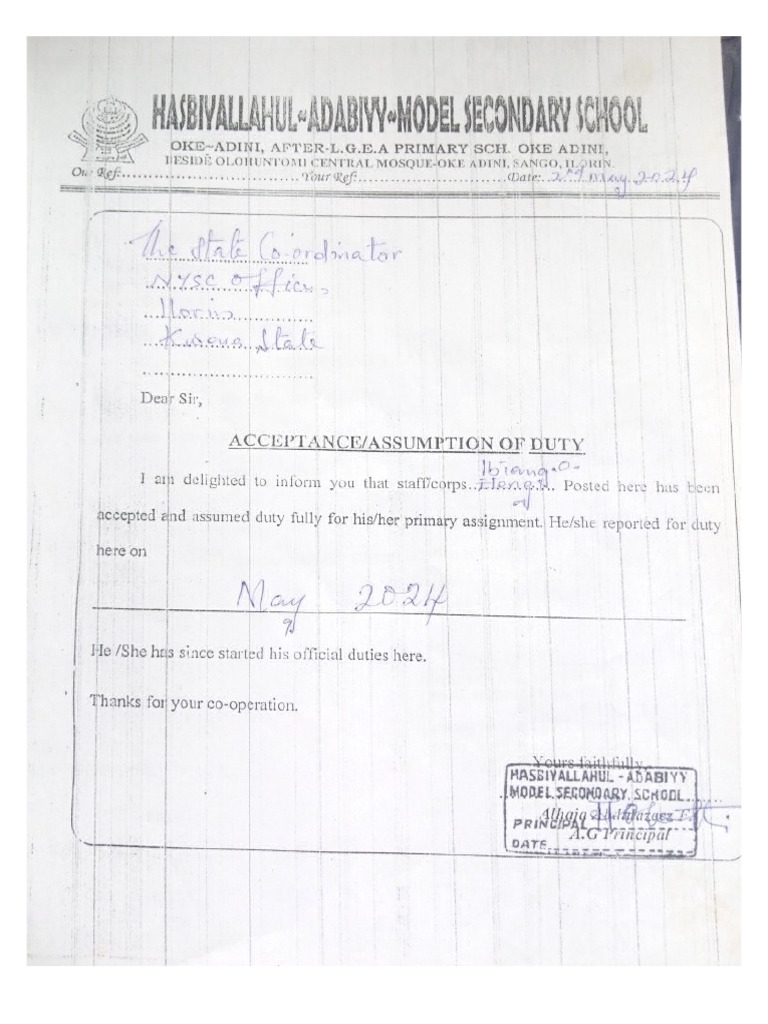 HASBIYALLAHUL~ADABIYY~MODEL SECONDARY SCHOOL
OKE~ADINI, AFTER-L.G.E.A PRIMARY SCH. OKE ADINI,
BESIDE OLOHUNTOMI CENTRAL MOSQUE-OKE ADINI, SANGO, ILORIN.
Our Ref:..............................Your Ref:..........................Date: 2nd May 2024
The State Co-ordinator
NYSC Office,
Ilorin,
Kwara State
Dear Sir,
ACCEPTANCE/ASSUMPTION OF DUTY
Ibiang-O-
I am delighted to inform you that staff/corps.. .. Posted here has been
accepted and assumed duty fully for his/her primary assignment. He/she reported for duty
here on
May 2024
He /She has since started his official duties here.
Thanks for your co-operation.
Yours faithfully,
HASBIYALLAHUL - ADABIYY
MODEL SECONDARY SCHOOL
Alhaja Abdulazeez
PRINCIPAL
A.G Principal
DATE